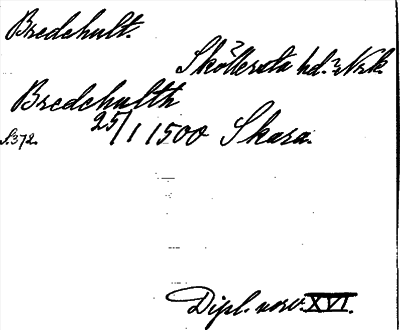 Bredehult.
Sköllersta hd. Nrk.
Bredehulth
S.372. 25/1 1500 Skara.
Dipl. norv. XVI.